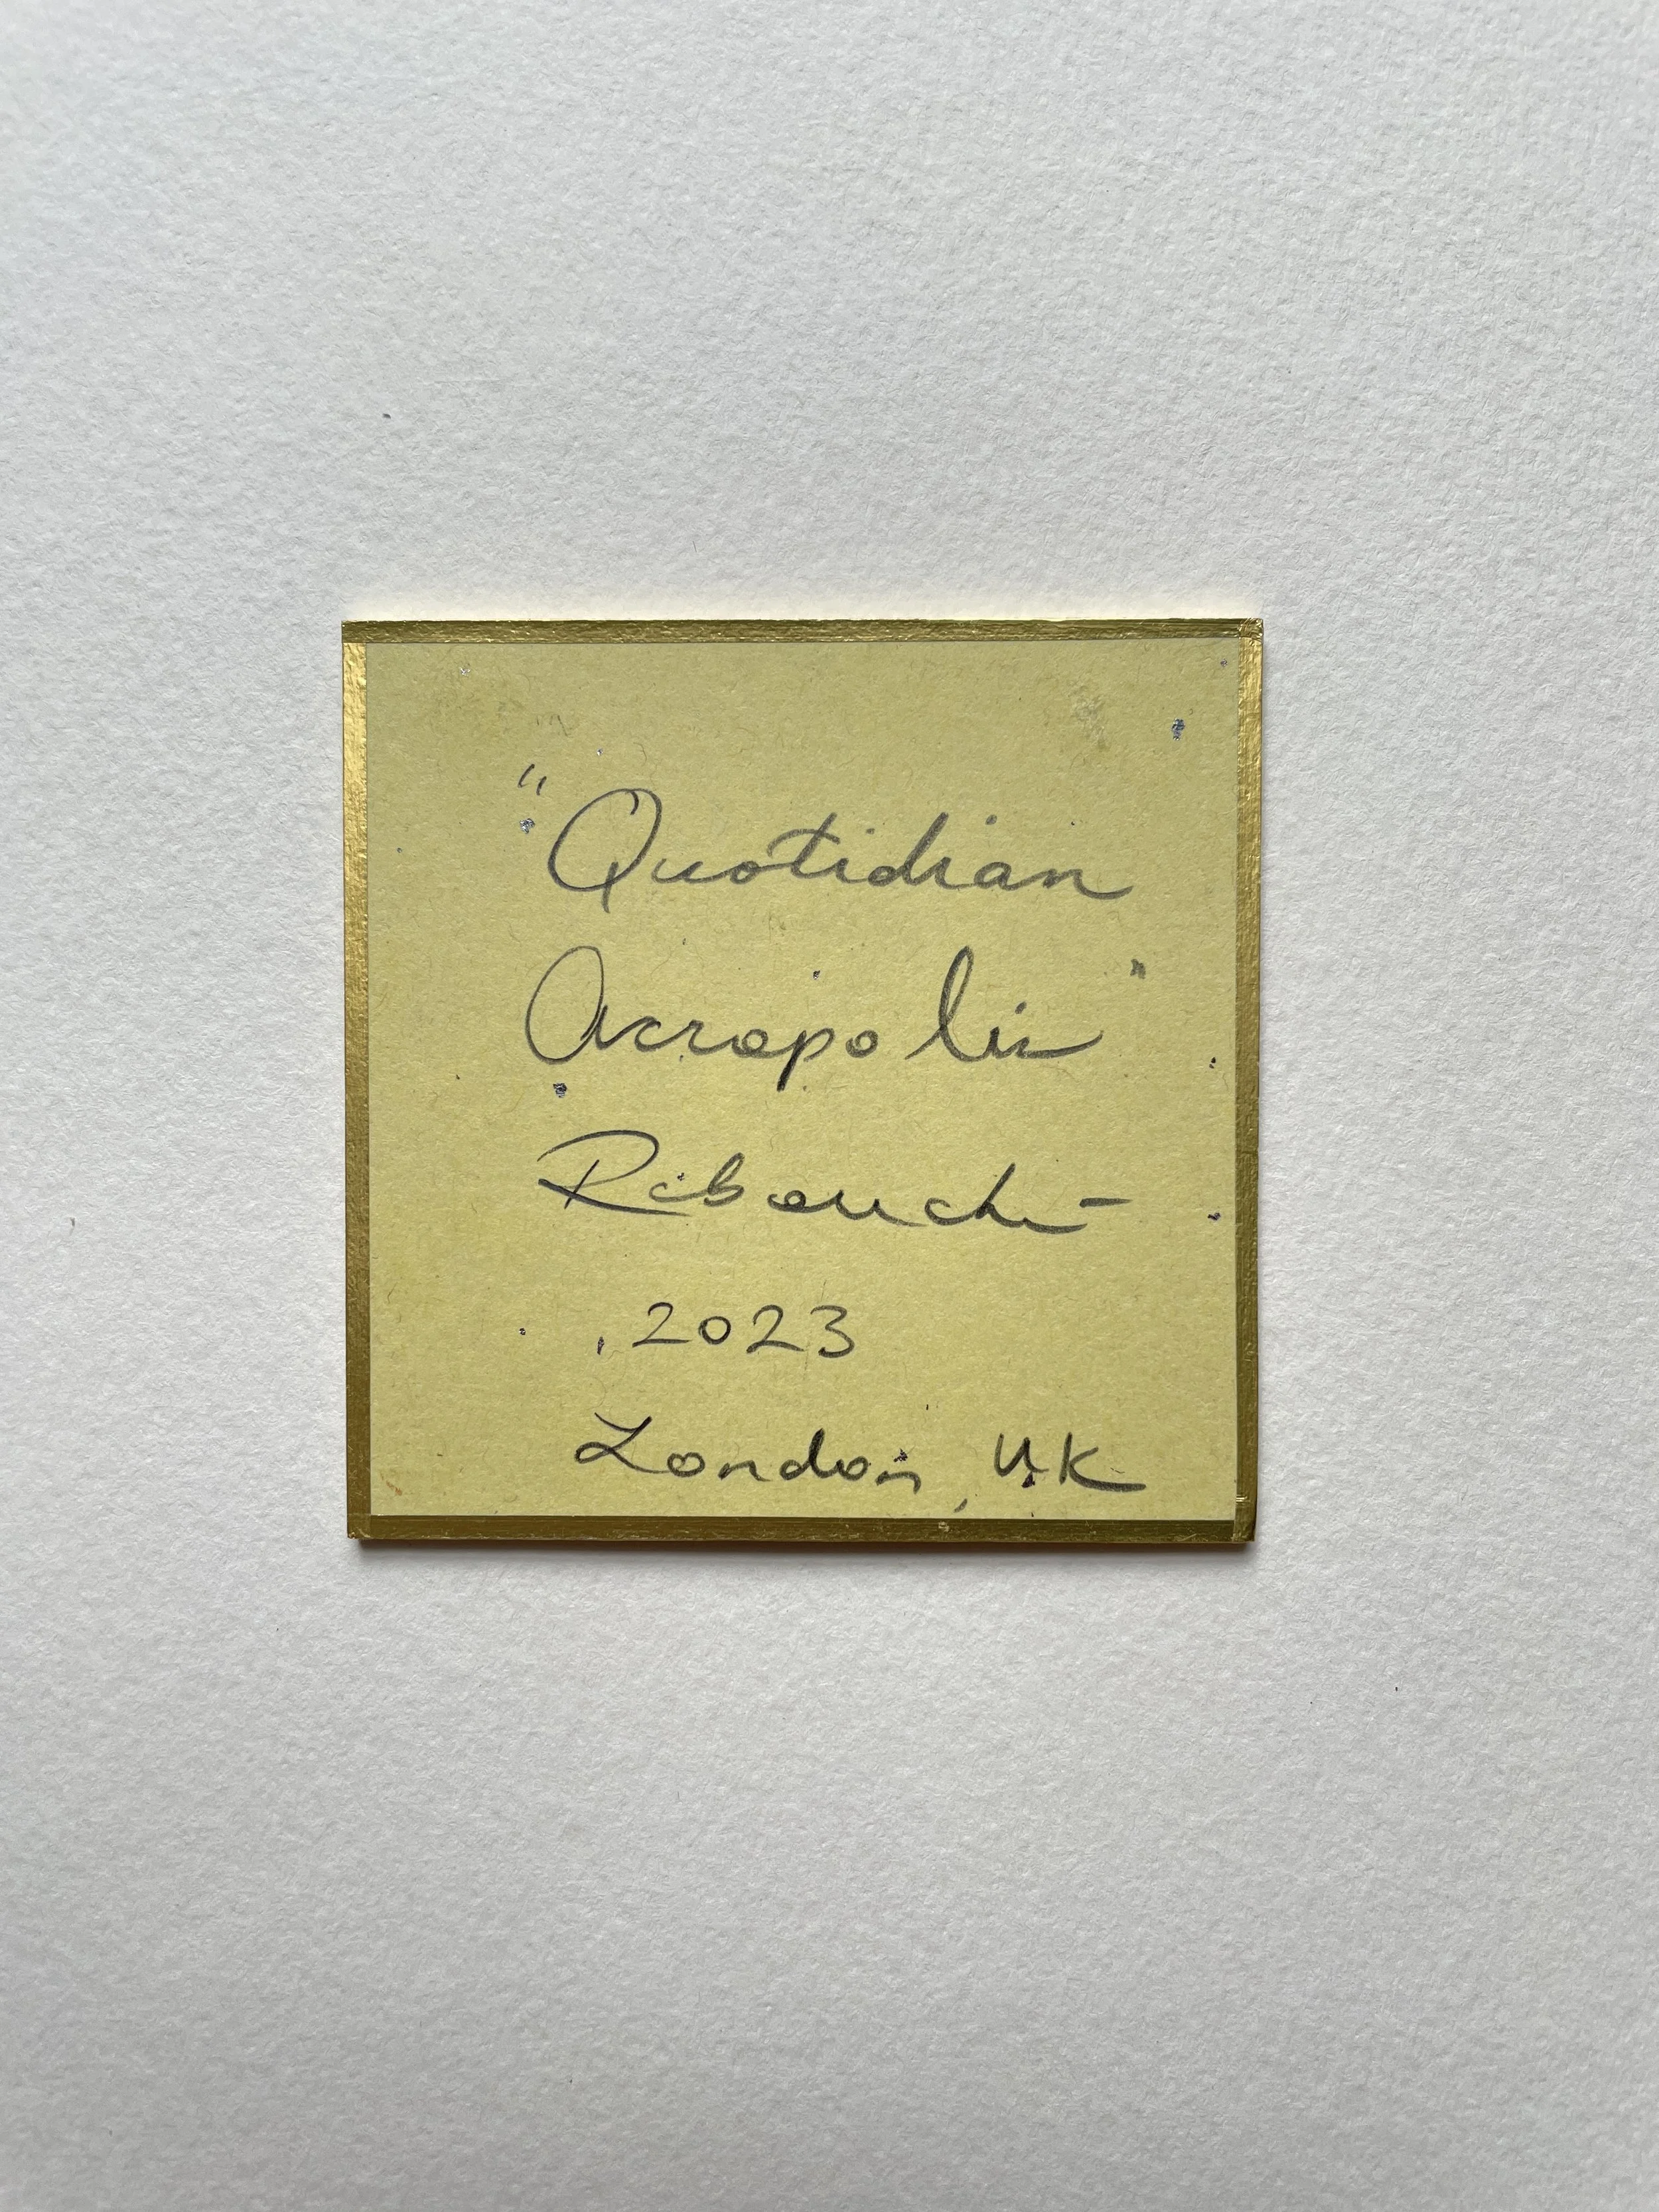 "Quotidian
Acropolis"
2023
London, UK